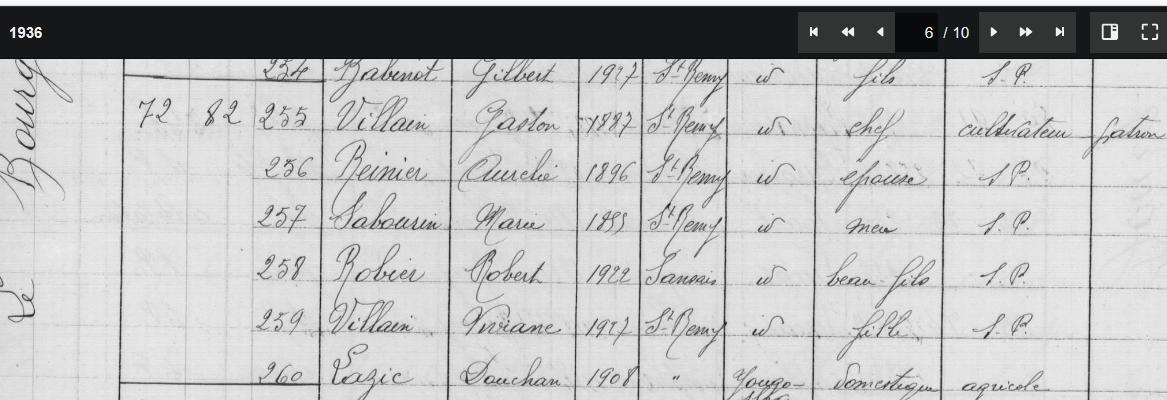 1936
6 / 10
Le Bourg
254 Babinot Gilbert 1927 St Remy id fils S.P.
72 82 255 Villain Gaston 1887 St Remy id chef cultivateur patron
256 Reinier Aurelie 1896 St Remy id epouse S P.
257 Sabourin Marie St Remy id S. P.
258 Robier Robert 1922 Sansais id beau-fils S. P.
259 Villain Viviane 1927 St Remy id fille S. P.
260 Lazic Douchan 1908 " Yougo- domestique agricole